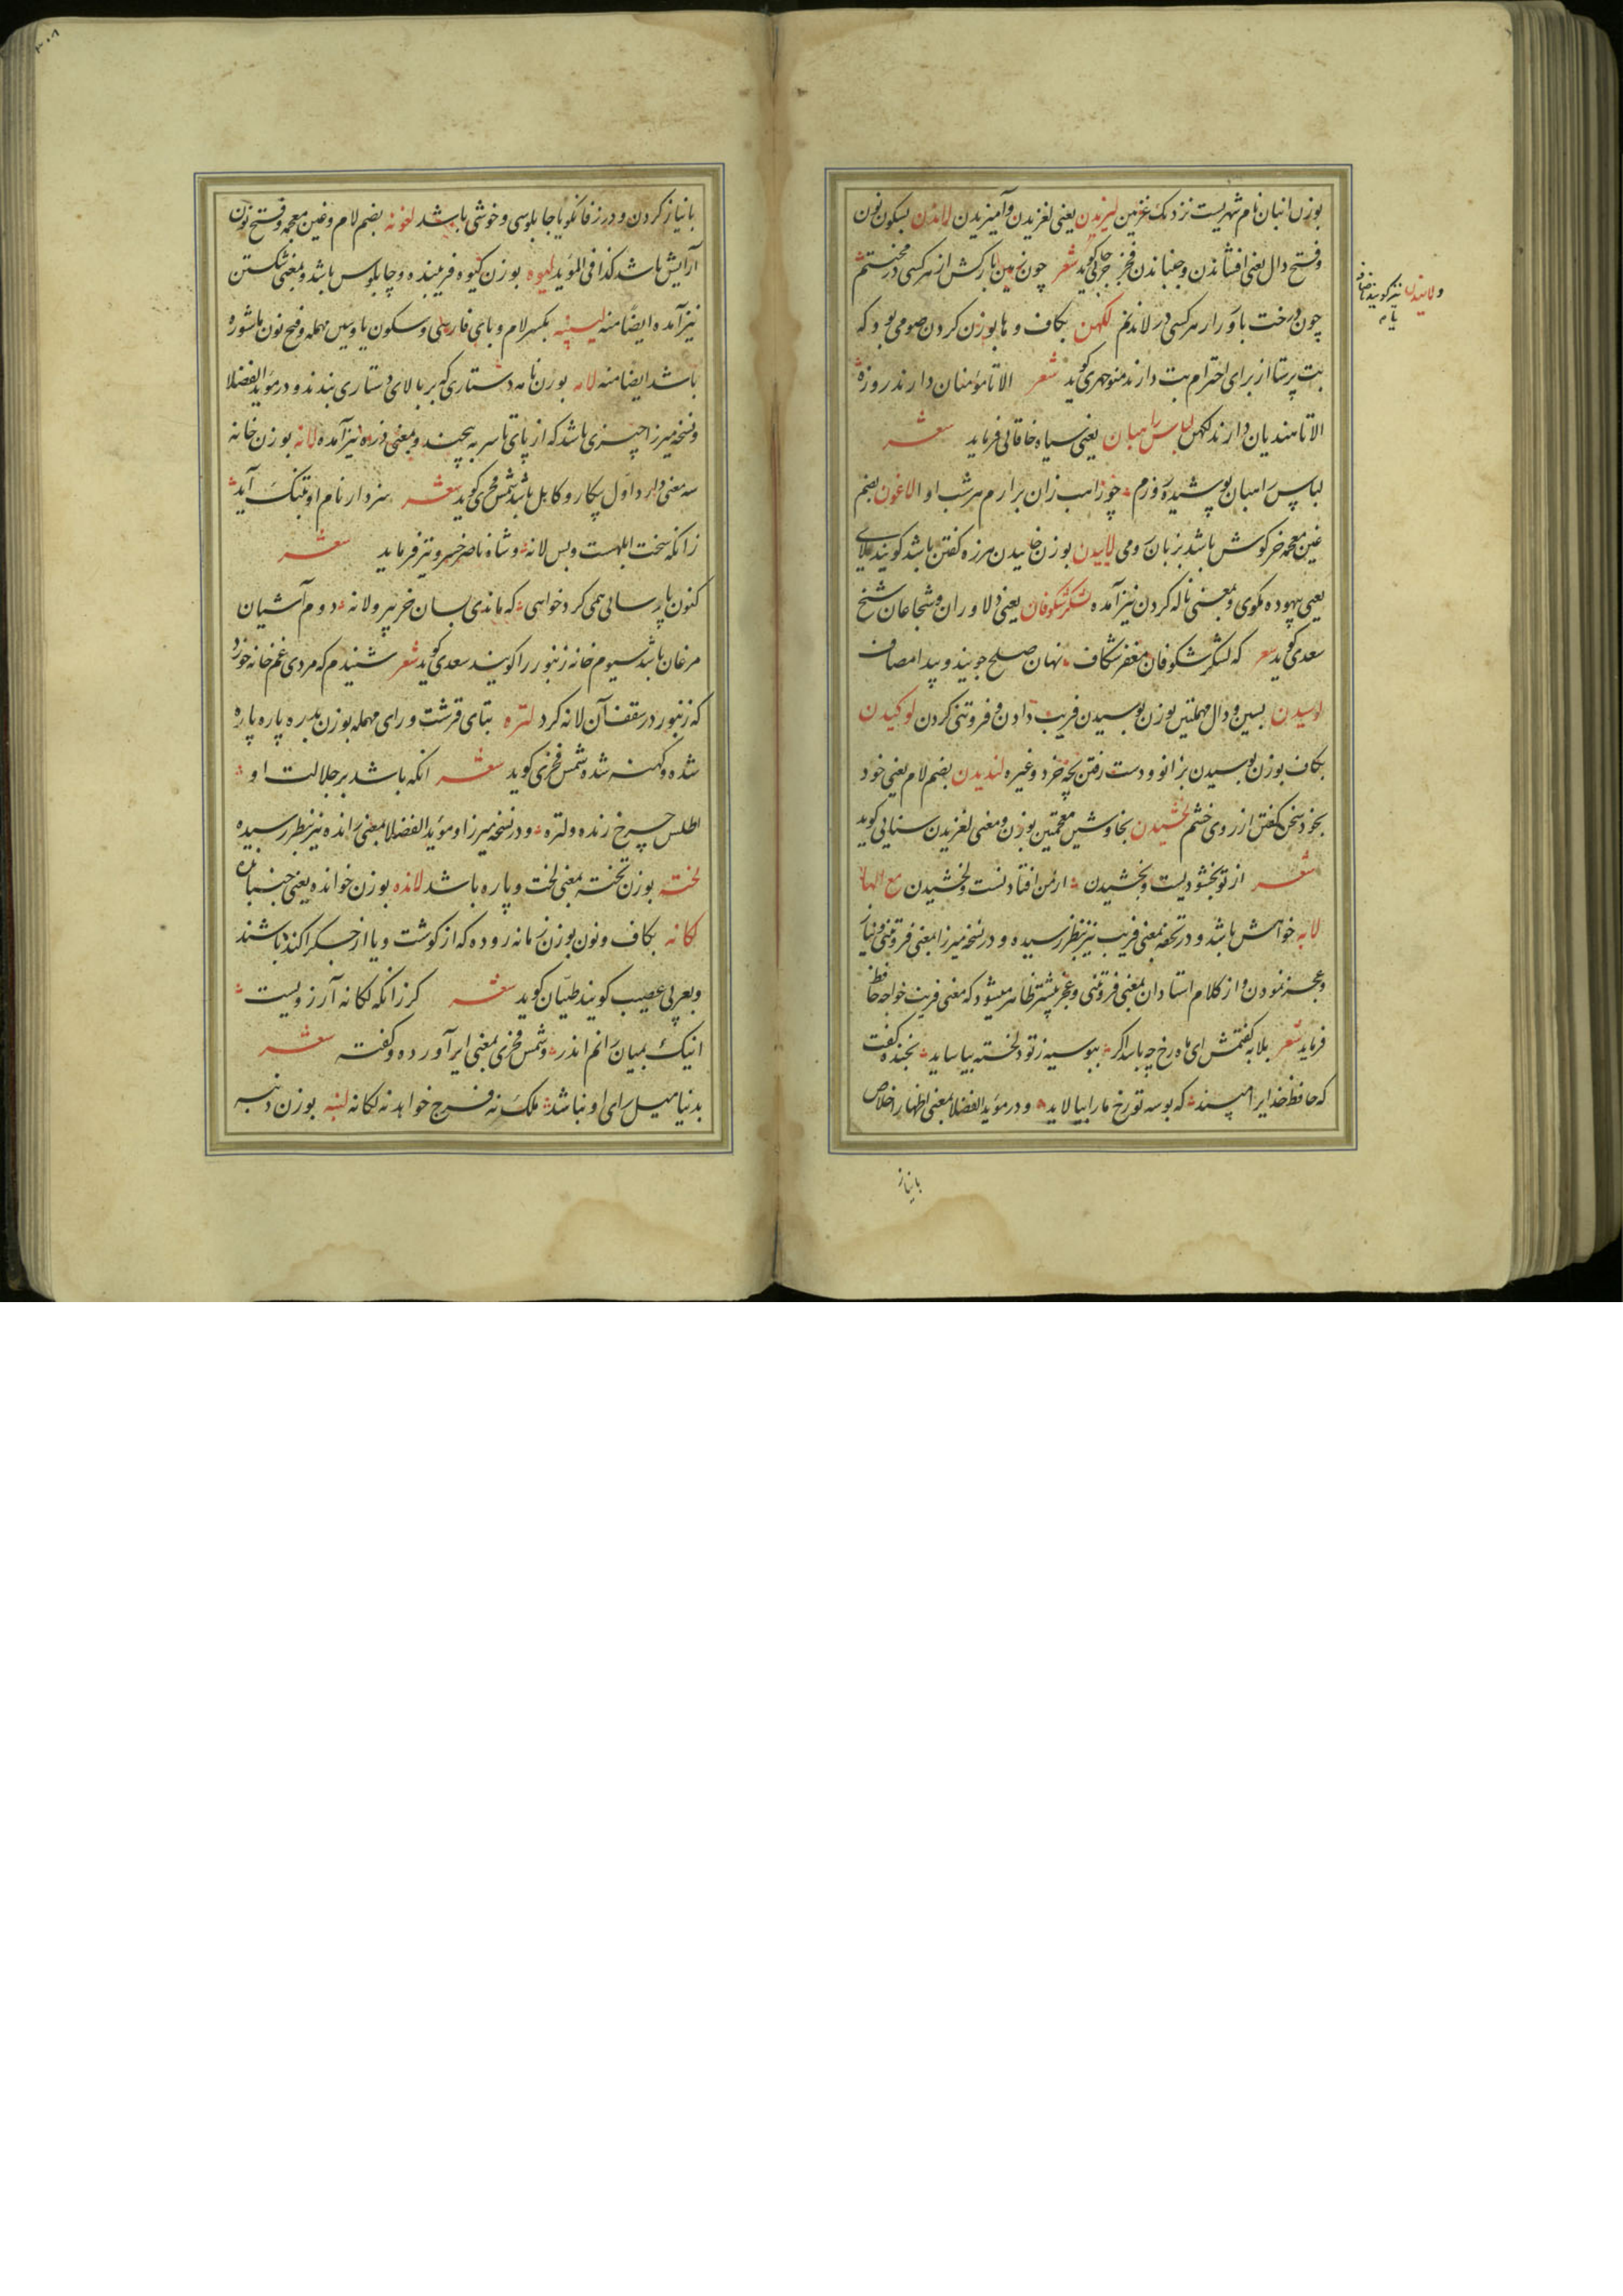 بوزن انبان نام شهریست نزدیک غزنین لیزیدن یعنی لغزیدن و آمیزیدن لاندن بسکون نون
و فتح دال یعنی افشاندن و جنباندن فخر جرجانی گوید شعر چون زمین بارکش از هر کسی در
چون درخت باور از هر کسی در لاندنم لکهن بکاف و ها بوزن کردن صومی بود که
بت پرستا از برای احترام بت دارند منوچهری گوید شعر الا تا مؤمنان دارند روزه
الا تا هندیان دارند لکهن لباس راهبان یعنی سیاه خاقانی فرماید شعر
لباس راهبان پوشیده روزم چو راهب زان برارم هر شب اوا لاغون بضم
غین معجمه خرگوش باشد بزبان رومی لاییدن بوزن خاییدن هرزه گفتن باشد گویند ملای
یعنی بیهوده مگوی و بمعنی ناله کردن نیز آمده لشکرشکوفان یعنی دلاوران و شجاعان شیخ
سعدی گوید شعر که لشکر شکوفان مغفر شکاف نهان صلح جویند و پیدا مصاف
لوسیدن بسین و دال مهملتین بوزن بوسیدن فریب دادن و فروتنی کردن لوکیدن
بکاف بوزن بوسیدن بزانو و دست رفتن بچه خرد و غیره لندیدن بضم لام یعنی خود
بخود سخن گفتن از روی خشم لخشیدن بخا و شین معجمتین بوزن و معنی لغزیدن سنایی گوید
شعر از تو بخشودنیست و بخشیدن از من افتادنست و لخشیدن مع الهاء
لابه خواهش باشد و در تحفه بمعنی فریب نیز بنظر رسیده و در نسخه میرزا بمعنی فروتنی و نیاز
و عجز نمودن و از کلام استادان بمعنی فروتنی و عجز بیشتر ظاهر میشود که معنی فریب خواجه حافظ
فرماید شعر بلابه گفتمش ای ماه رخ چه باشد اگر ببوسه ز تو دلخسته بیاساید بخنده گفت
که حافظ خدایرا مپسند که بوسه تو رخ ما را بیالاید و در مؤید الفضلا بمعنی اظهار اخلاص
بانیاز
ولانیدن نیز گویند باضافه
یا
بانیاز کردن و در زفانگویا چاپلوسی و خوشی باشد لغونه بضم لام و غین معجمه و فتح نون
آرایش باشد کذا فی المؤید لیوه بوزن گیوه فریبنده و چاپلوس باشد و بمعنی شکستن
نیز آمده ایضا منه لیسپنه بکسر لام و بای فارسی و سکون یا و سین مهمله و فتح نون ماشوره
باشد ایضا منه لامه بوزن نامه دستاری که بر بالای دستاری بندند و در مؤید الفضلا
و نسخه میرزا چیزی باشد که از پای تا سر به پیچند و بمعنی زره نیز آمده لانه بوزن خانه
سه معنی دارد اول بیکار و کاهل باشد شمس فخری گوید شعر هنر دار نام او بتنگ آید
زانکه سخت ابلهست و بس لانه و شاه ناصر خسرو نیز فرماید شعر
کنون پارسایی همی کرد خواهی که ماندی بسان خر پیر و لانه دوم آشیان
مرغان باشد سیوم خانه زنبور را گویند سعدی گوید شعر شنیدم که مردی غم خانه خورد
که زنبور در سقف آن لانه کرد لتره بتای قرشت و رای مهمله بوزن بدره پاره پاره
شده و کهنه شده شمس فخری گوید شعر انکه باشد بر جلالت او
اطلس چرخ زنده و لتره و در نسخه میرزا و مؤید الفضلا بمعنی رانده نیز بنظر رسیده
لخته بوزن تخته بمعنی لخت و پاره باشد لانده بوزن خوانده یعنی جنبانده
لکانه بکاف و نون بوزن زمانه روده که از گوشت و یا از جگر آکنده باشند
و بعربی عصیب گویند طیان گوید شعر گر زانکه لکانه آرزویست
اینک بمیان رانم اندر و شمس فخری بمعنی ایر آورده و گفته شعر
بدنیا میل رای او نباشد ملک نه فرج خواهد نه لکانه لنبه بوزن دنبه